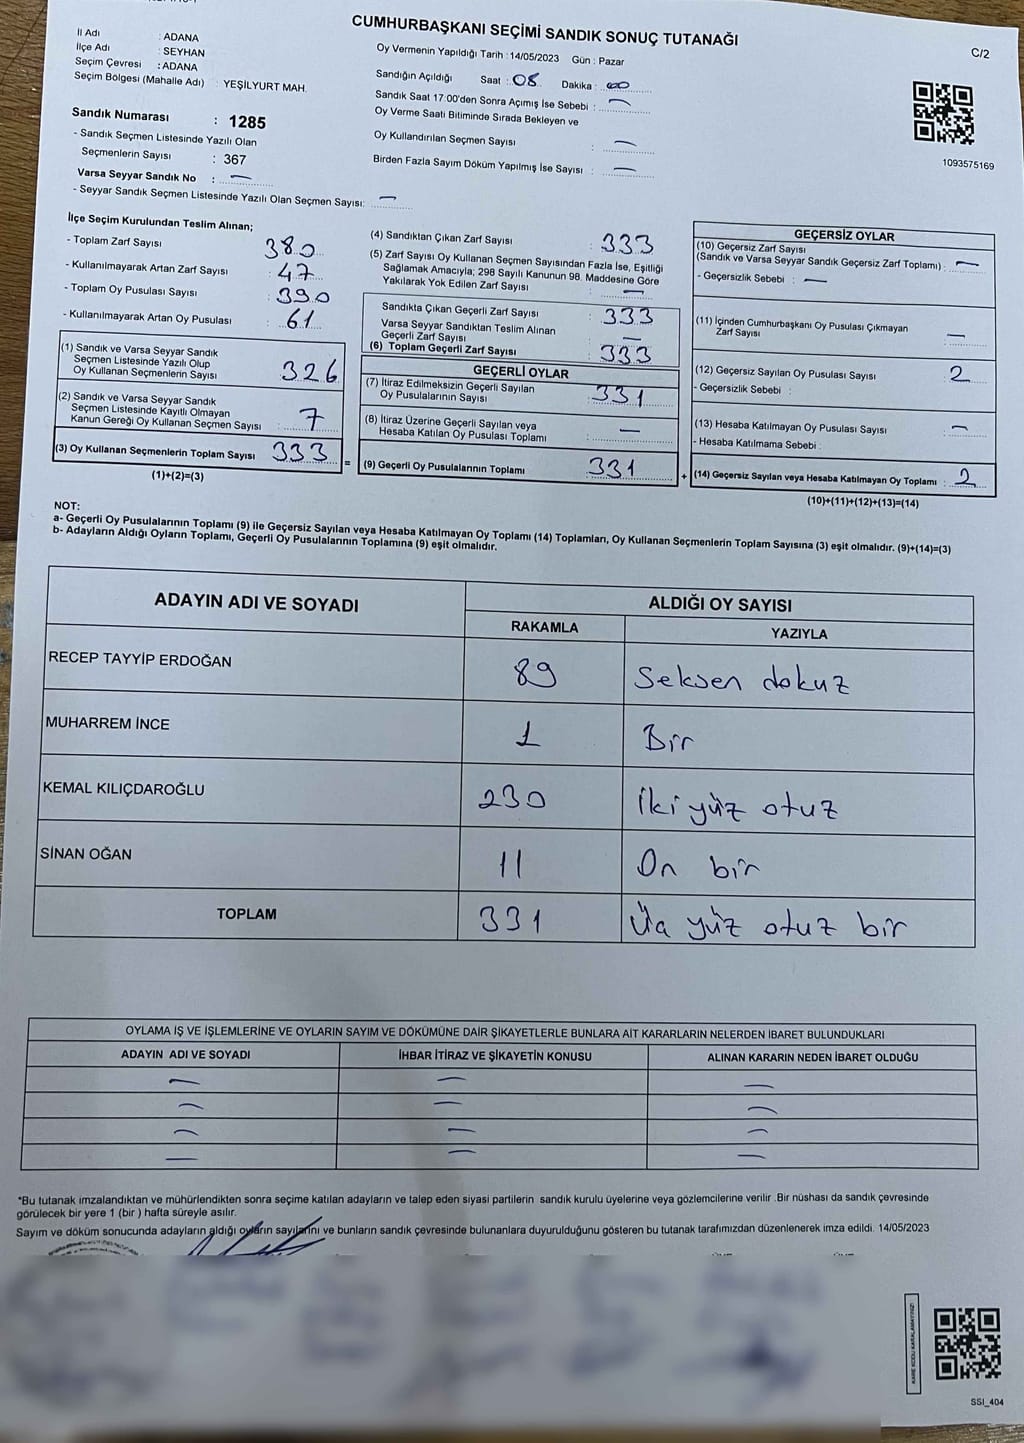 CUMHURBAŞKANI SEÇİMİ SANDIK SONUÇ TUTANAĞI
C/2
İl Adı : ADANA
İlçe Adı : SEYHAN
Seçim Çevresi : ADANA
Seçim Bölgesi (Mahalle Adı) : YEŞİLYURT MAH.
Sandık Numarası : 1285
- Sandık Seçmen Listesinde Yazılı Olan
Seçmenlerin Sayısı : 367
Varsa Seyyar Sandık No : —
- Seyyar Sandık Seçmen Listesinde Yazılı Olan Seçmen Sayısı: —
Oy Vermenin Yapıldığı Tarih : 14/05/2023 Gün : Pazar
Sandığın Açıldığı Saat : 08 Dakika : 00
Sandık Saat 17:00'den Sonra Açımış İse Sebebi : —
Oy Verme Saati Bitiminde Sırada Bekleyen ve
Oy Kullandırılan Seçmen Sayısı : —
Birden Fazla Sayım Döküm Yapılmış İse Sayısı : —
1093575169
İlçe Seçim Kurulundan Teslim Alınan;
- Toplam Zarf Sayısı : 380
- Kullanılmayarak Artan Zarf Sayısı : 47
- Toplam Oy Pusulası Sayısı : 390
- Kullanılmayarak Artan Oy Pusulası : 61
(1) Sandık ve Varsa Seyyar Sandık
Seçmen Listesinde Yazılı Olup
Oy Kullanan Seçmenlerin Sayısı 326
(2) Sandık ve Varsa Seyyar Sandık
Seçmen Listesinde Kayıtlı Olmayan
Kanun Gereği Oy Kullanan Seçmen Sayısı : 7
(3) Oy Kullanan Seçmenlerin Toplam Sayısı 333
(1)+(2)=(3)
=
(4) Sandıktan Çıkan Zarf Sayısı : 333
(5) Zarf Sayısı Oy Kullanan Seçmen Sayısından Fazla İse, Eşitliği
Sağlamak Amacıyla; 298 Sayılı Kanunun 98. Maddesine Göre
Yakılarak Yok Edilen Zarf Sayısı : —
Sandıkta Çıkan Geçerli Zarf Sayısı : 333
Varsa Seyyar Sandıktan Teslim Alınan
Geçerli Zarf Sayısı : —
(6) Toplam Geçerli Zarf Sayısı : 333
GEÇERLİ OYLAR
(7) İtiraz Edilmeksizin Geçerli Sayılan
Oy Pusulalarının Sayısı : 331
(8) İtiraz Üzerine Geçerli Sayılan veya
Hesaba Katılan Oy Pusulası Toplamı : —
(9) Geçerli Oy Pusulalarının Toplamı : 331
+
GEÇERSİZ OYLAR
(10) Geçersiz Zarf Sayısı
(Sandık ve Varsa Seyyar Sandık Geçersiz Zarf Toplamı) : —
- Geçersizlik Sebebi : —
(11) İçinden Cumhurbaşkanı Oy Pusulası Çıkmayan
Zarf Sayısı : —
(12) Geçersiz Sayılan Oy Pusulası Sayısı : 2
- Geçersizlik Sebebi :
(13) Hesaba Katılmayan Oy Pusulası Sayısı : —
- Hesaba Katılmama Sebebi :
(14) Geçersiz Sayılan veya Hesaba Katılmayan Oy Toplamı : 2
(10)+(11)+(12)+(13)=(14)
NOT:
a- Geçerli Oy Pusulalarının Toplamı (9) ile Geçersiz Sayılan veya Hesaba Katılmayan Oy Toplamı (14) Toplamları, Oy Kullanan Seçmenlerin Toplam Sayısına (3) eşit olmalıdır. (9)+(14)=(3)
b- Adayların Aldığı Oyların Toplamı, Geçerli Oy Pusulalarının Toplamına (9) eşit olmalıdır.
ADAYIN ADI VE SOYADI ALDIĞI OY SAYISI
RAKAMLA YAZIYLA
RECEP TAYYİP ERDOĞAN 89 Seksen dokuz
MUHARREM İNCE 1 Bir
KEMAL KILIÇDAROĞLU 230 İki yüz otuz
SİNAN OĞAN 11 On bir
TOPLAM 331 Üç yüz otuz bir
OYLAMA İŞ VE İŞLEMLERİNE VE OYLARIN SAYIM VE DÖKÜMÜNE DAİR ŞİKAYETLERLE BUNLARA AİT KARARLARIN NELERDEN İBARET BULUNDUKLARI
ADAYIN ADI VE SOYADI İHBAR İTİRAZ VE ŞİKAYETİN KONUSU ALINAN KARARIN NEDEN İBARET OLDUĞU
— — —
— — —
— — —
— — —
*Bu tutanak imzalandıktan ve mühürlendikten sonra seçime katılan adayların ve talep eden siyasi partilerin sandık kurulu üyelerine veya gözlemcilerine verilir .Bir nüshası da sandık çevresinde
görülecek bir yere 1 (bir ) hafta süreyle asılır.
Sayım ve döküm sonucunda adayların aldığı oyların sayılarını ve bunların sandık çevresinde bulunanlara duyurulduğunu gösteren bu tutanak tarafımızdan düzenlenerek imza edildi. 14/05/2023
KARE KODU KARALAMAYINIZ!
SSI_404